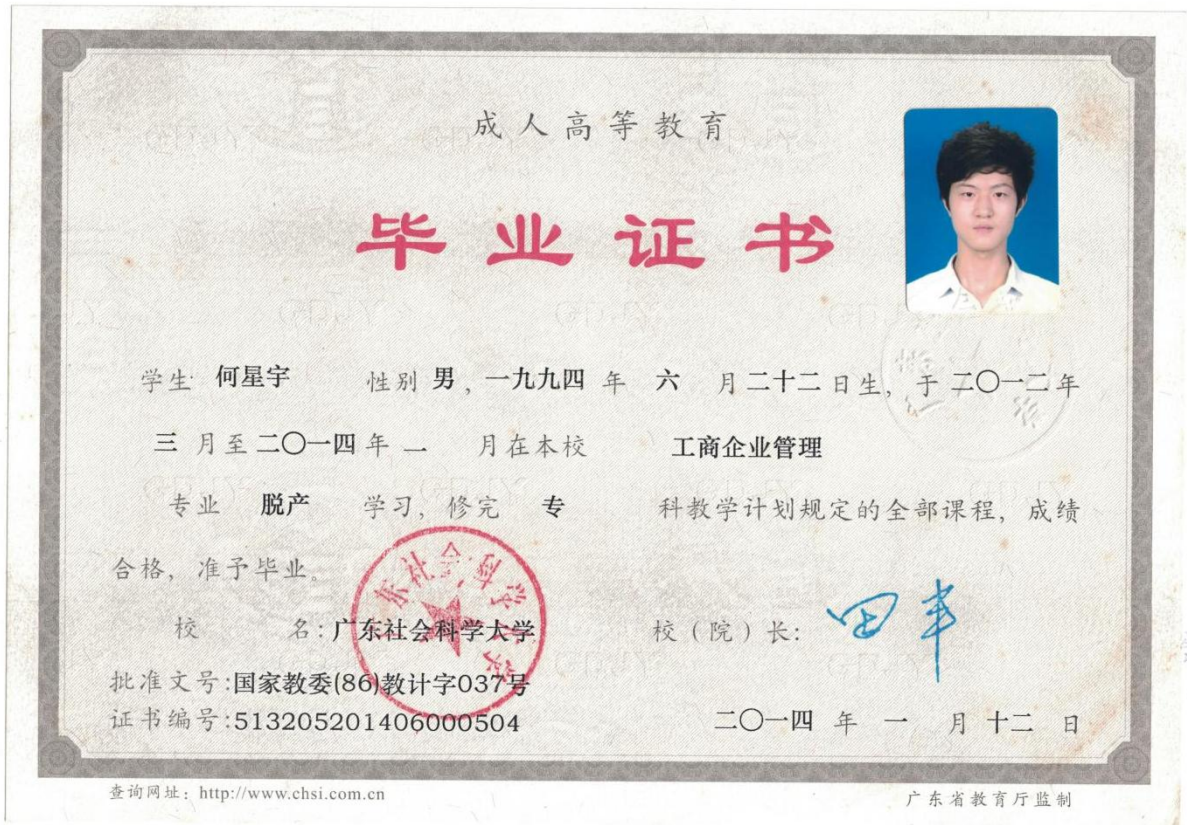 成人高等教育
毕业证书
学生 何星宇 性别 男，一九九四 年 六 月二十二日生，于 二〇一二年
三 月至 二〇一四 年 一 月在本校 工商企业管理
专业 脱产 学习，修完 专 科教学计划规定的全部课程，成绩
合格，准予毕业。
广东社会科学大学
校 名：广东社会科学大学 校（院）长：田丰
批准文号：国家教委(86)教计字037号
证书编号：513205201406000504 二〇一四 年 一 月 十二 日
查询网址：http://www.chsi.com.cn 广东省教育厅监制